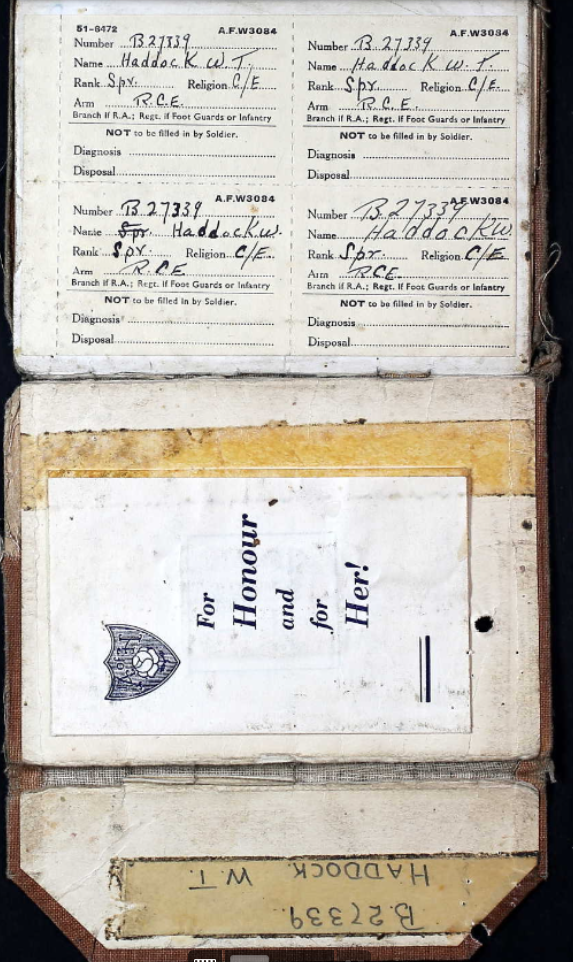 51-6472 A.F.W3084
Number B 27339
Name Haddock W. T.
Rank Spr. Religion C/E
Arm R.C.E.
Branch if R.A.; Regt. if Foot Guards or Infantry
NOT to be filled in by Soldier.
Diagnosis
Disposal
A.F.W3084
Number B. 27339
Name Haddock W. T.
Rank Spr. Religion C/E.
Arm R.C.E.
Branch if R.A.; Regt. if Foot Guards or Infantry
NOT to be filled in by Soldier.
Diagnosis
Disposal
A.F.W3084
Number B 27339
Name Spr. Haddock W.
Rank Spr. Religion C/E.
Arm R.C.E
Branch if R.A.; Regt. if Foot Guards or Infantry
NOT to be filled in by Soldier.
Diagnosis
Disposal
A.F.W3084
Number B 27339
Name Haddock W.
Rank Spr. Religion C/E
Arm R.C.E.
Branch if R.A.; Regt. if Foot Guards or Infantry
NOT to be filled in by Soldier.
Diagnosis
Disposal
For
Honour
and
for
Her!
B 27339
HADDOCK W T.